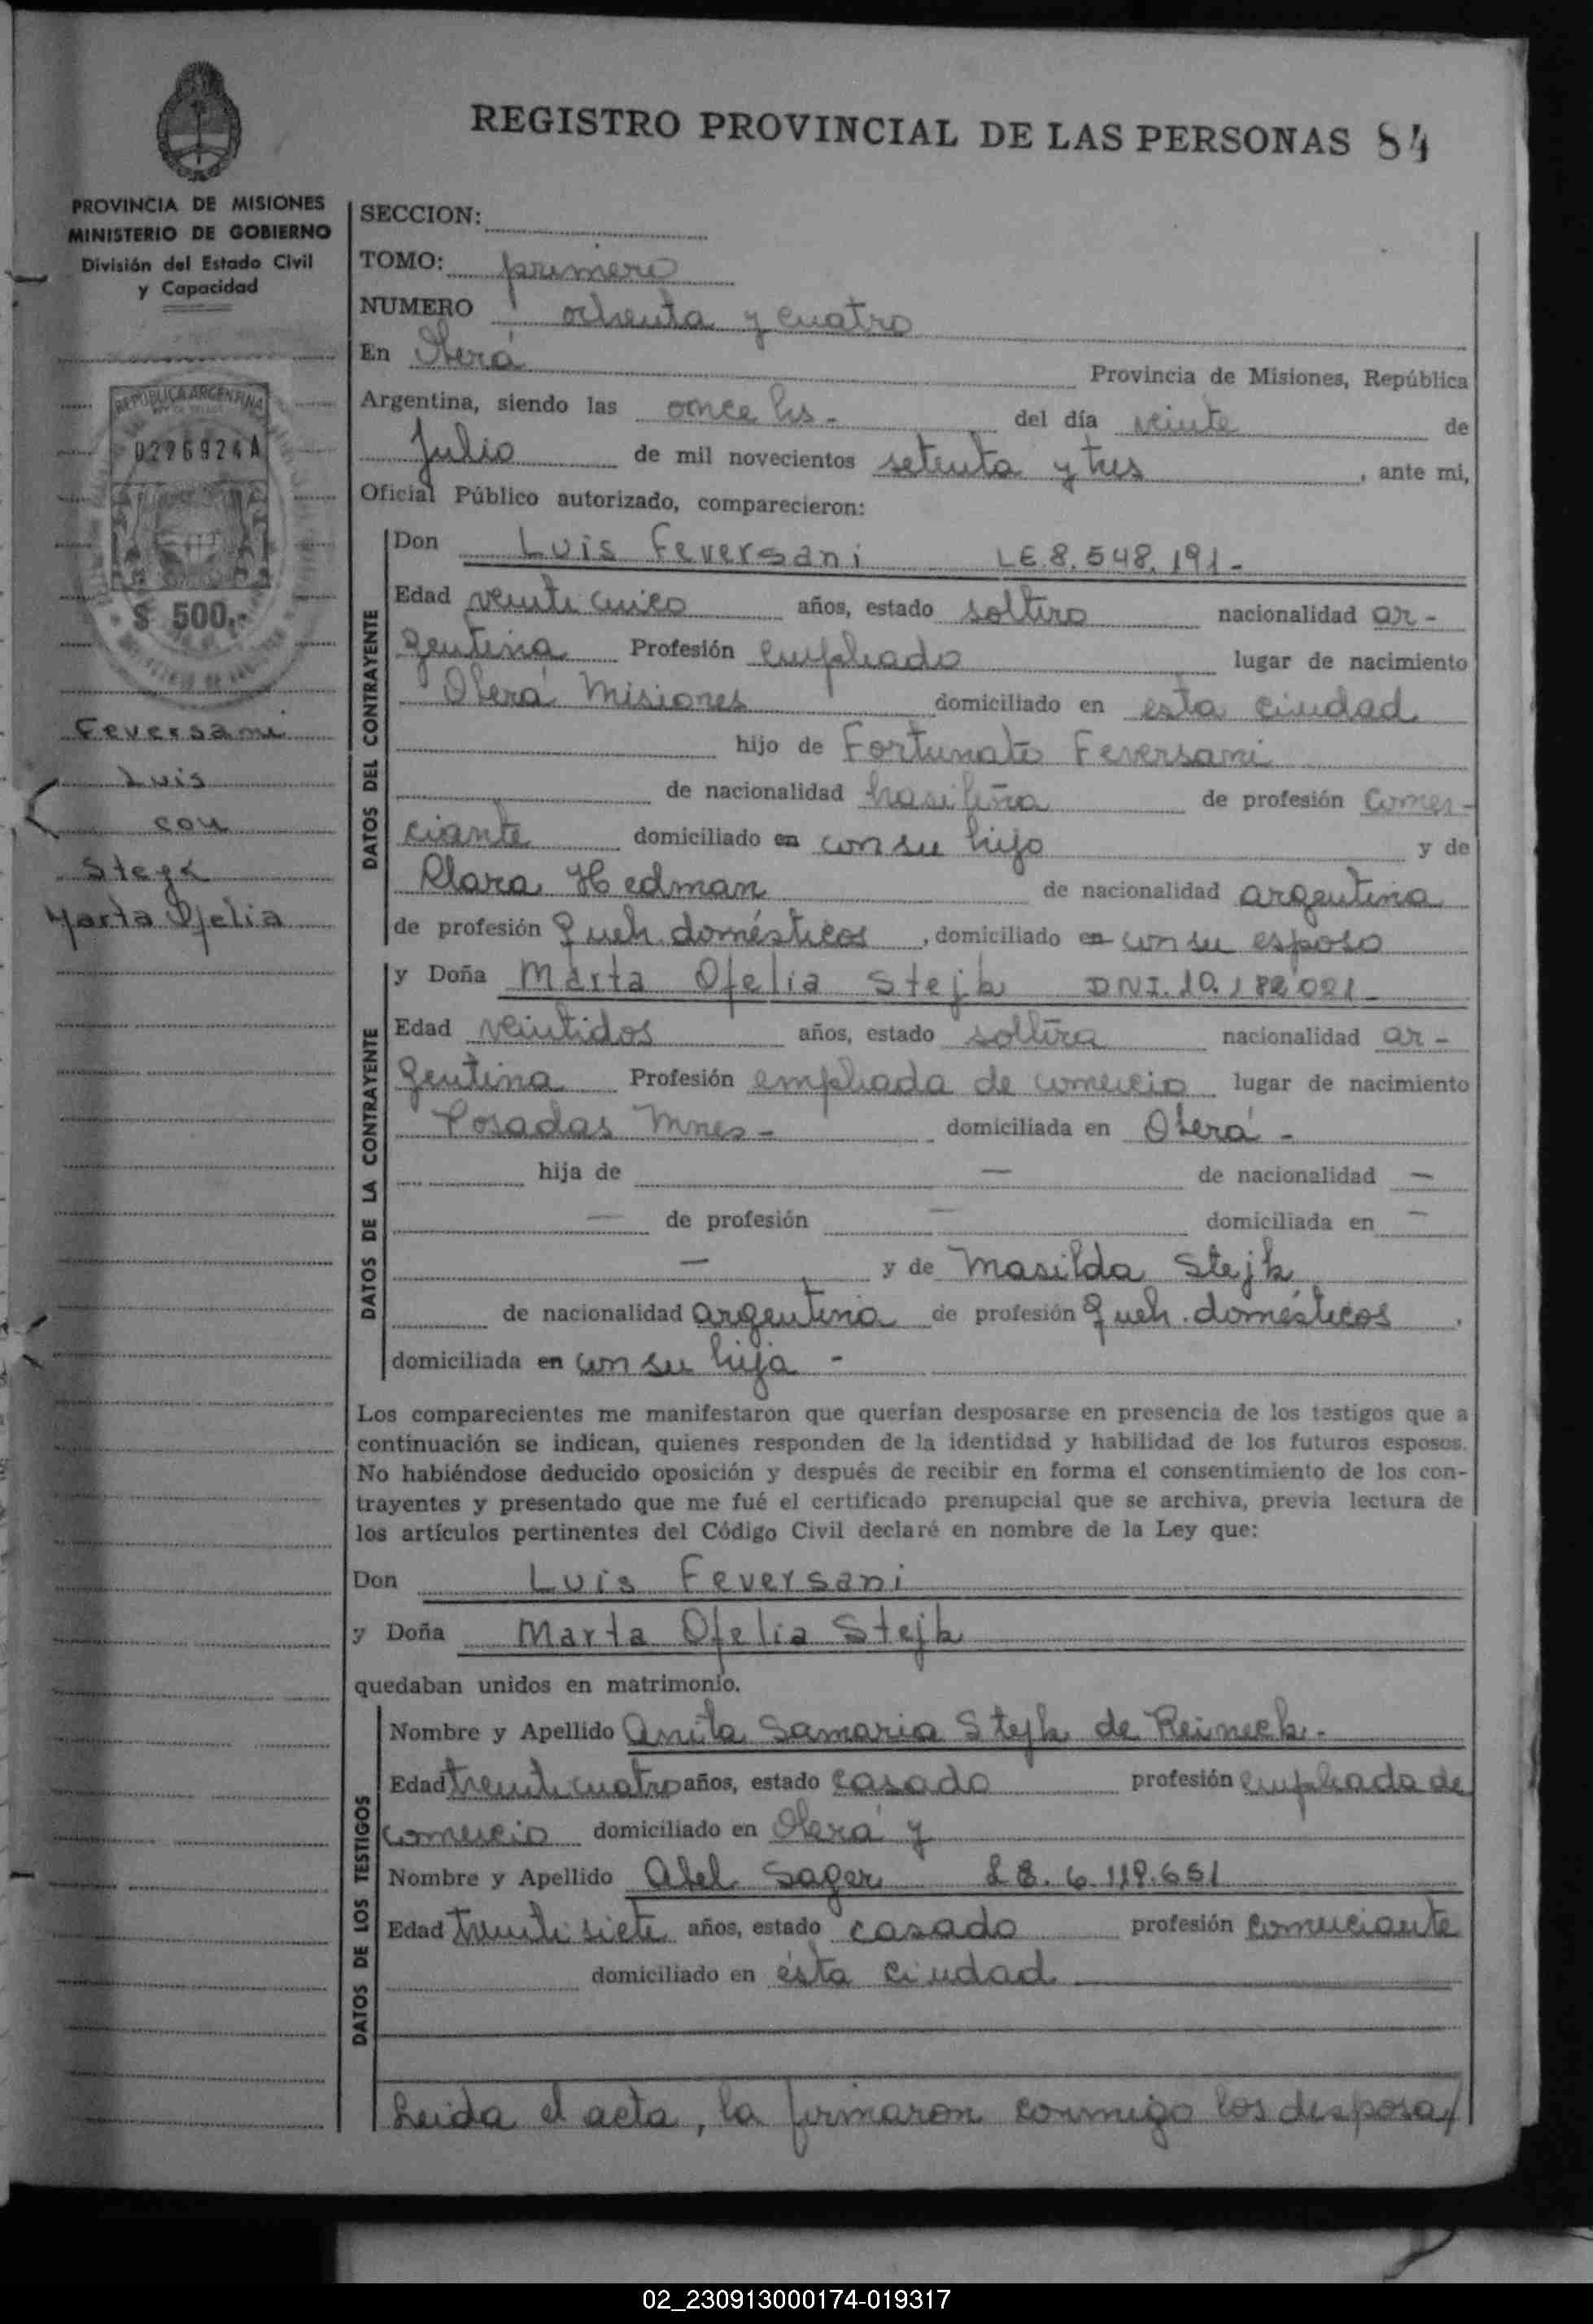 REGISTRO PROVINCIAL DE LAS PERSONAS 84
PROVINCIA DE MISIONES
MINISTERIO DE GOBIERNO
División del Estado Civil
y Capacidad
REPUBLICA ARGENTINA
0296924A
$ 500.-
Feversani
Luis
con
Stejk
Marta Ofelia
SECCION:
TOMO: primero
NUMERO ochenta y cuatro
En Oberá Provincia de Misiones, República
Argentina, siendo las once hs- del día veinte de
Julio de mil novecientos setenta y tres, ante mi,
Oficial Público autorizado, comparecieron:
DATOS DEL CONTRAYENTE
Don Luis Feversani LE 8.548.191-
Edad veinticinco años, estado soltero nacionalidad ar-
gentina Profesión empleado lugar de nacimiento
Oberá Misiones domiciliado en esta ciudad
hijo de Fortunato Feversani
de nacionalidad brasileña de profesión comer-
ciante domiciliado en con su hijo y de
Clara Hedman de nacionalidad argentina
de profesión queh. domésticos, domiciliado en con su esposo
DATOS DE LA CONTRAYENTE
y Doña Marta Ofelia Stejk DNI. 10.182021-
Edad veintidos años, estado soltera nacionalidad ar-
gentina Profesión empleada de comercio lugar de nacimiento
Posadas Mnes- domiciliada en Oberá-
hija de — de nacionalidad —
— de profesión — domiciliada en —
— y de Masilda Stejk
de nacionalidad argentina de profesión queh. domésticos,
domiciliada en con su hija -
Los comparecientes me manifestaron que querían desposarse en presencia de los testigos que a
continuación se indican, quienes responden de la identidad y habilidad de los futuros esposos.
No habiéndose deducido oposición y después de recibir en forma el consentimiento de los con-
trayentes y presentado que me fué el certificado prenupcial que se archiva, previa lectura de
los artículos pertinentes del Código Civil declaré en nombre de la Ley que:
Don Luis Feversani
y Doña Marta Ofelia Stejk
quedaban unidos en matrimonio.
DATOS DE LOS TESTIGOS
Nombre y Apellido Anita Samaria Stejk de Reineck-
Edad treinticuatro años, estado casado profesión empleada de
comercio domiciliado en Oberá y
Nombre y Apellido Abel Sager 6.119.651
Edad treintisiete años, estado casado profesión comerciante
domiciliado en ésta ciudad
Leida el acta, la firmaron conmigo los desposa/
02_230913000174-019317